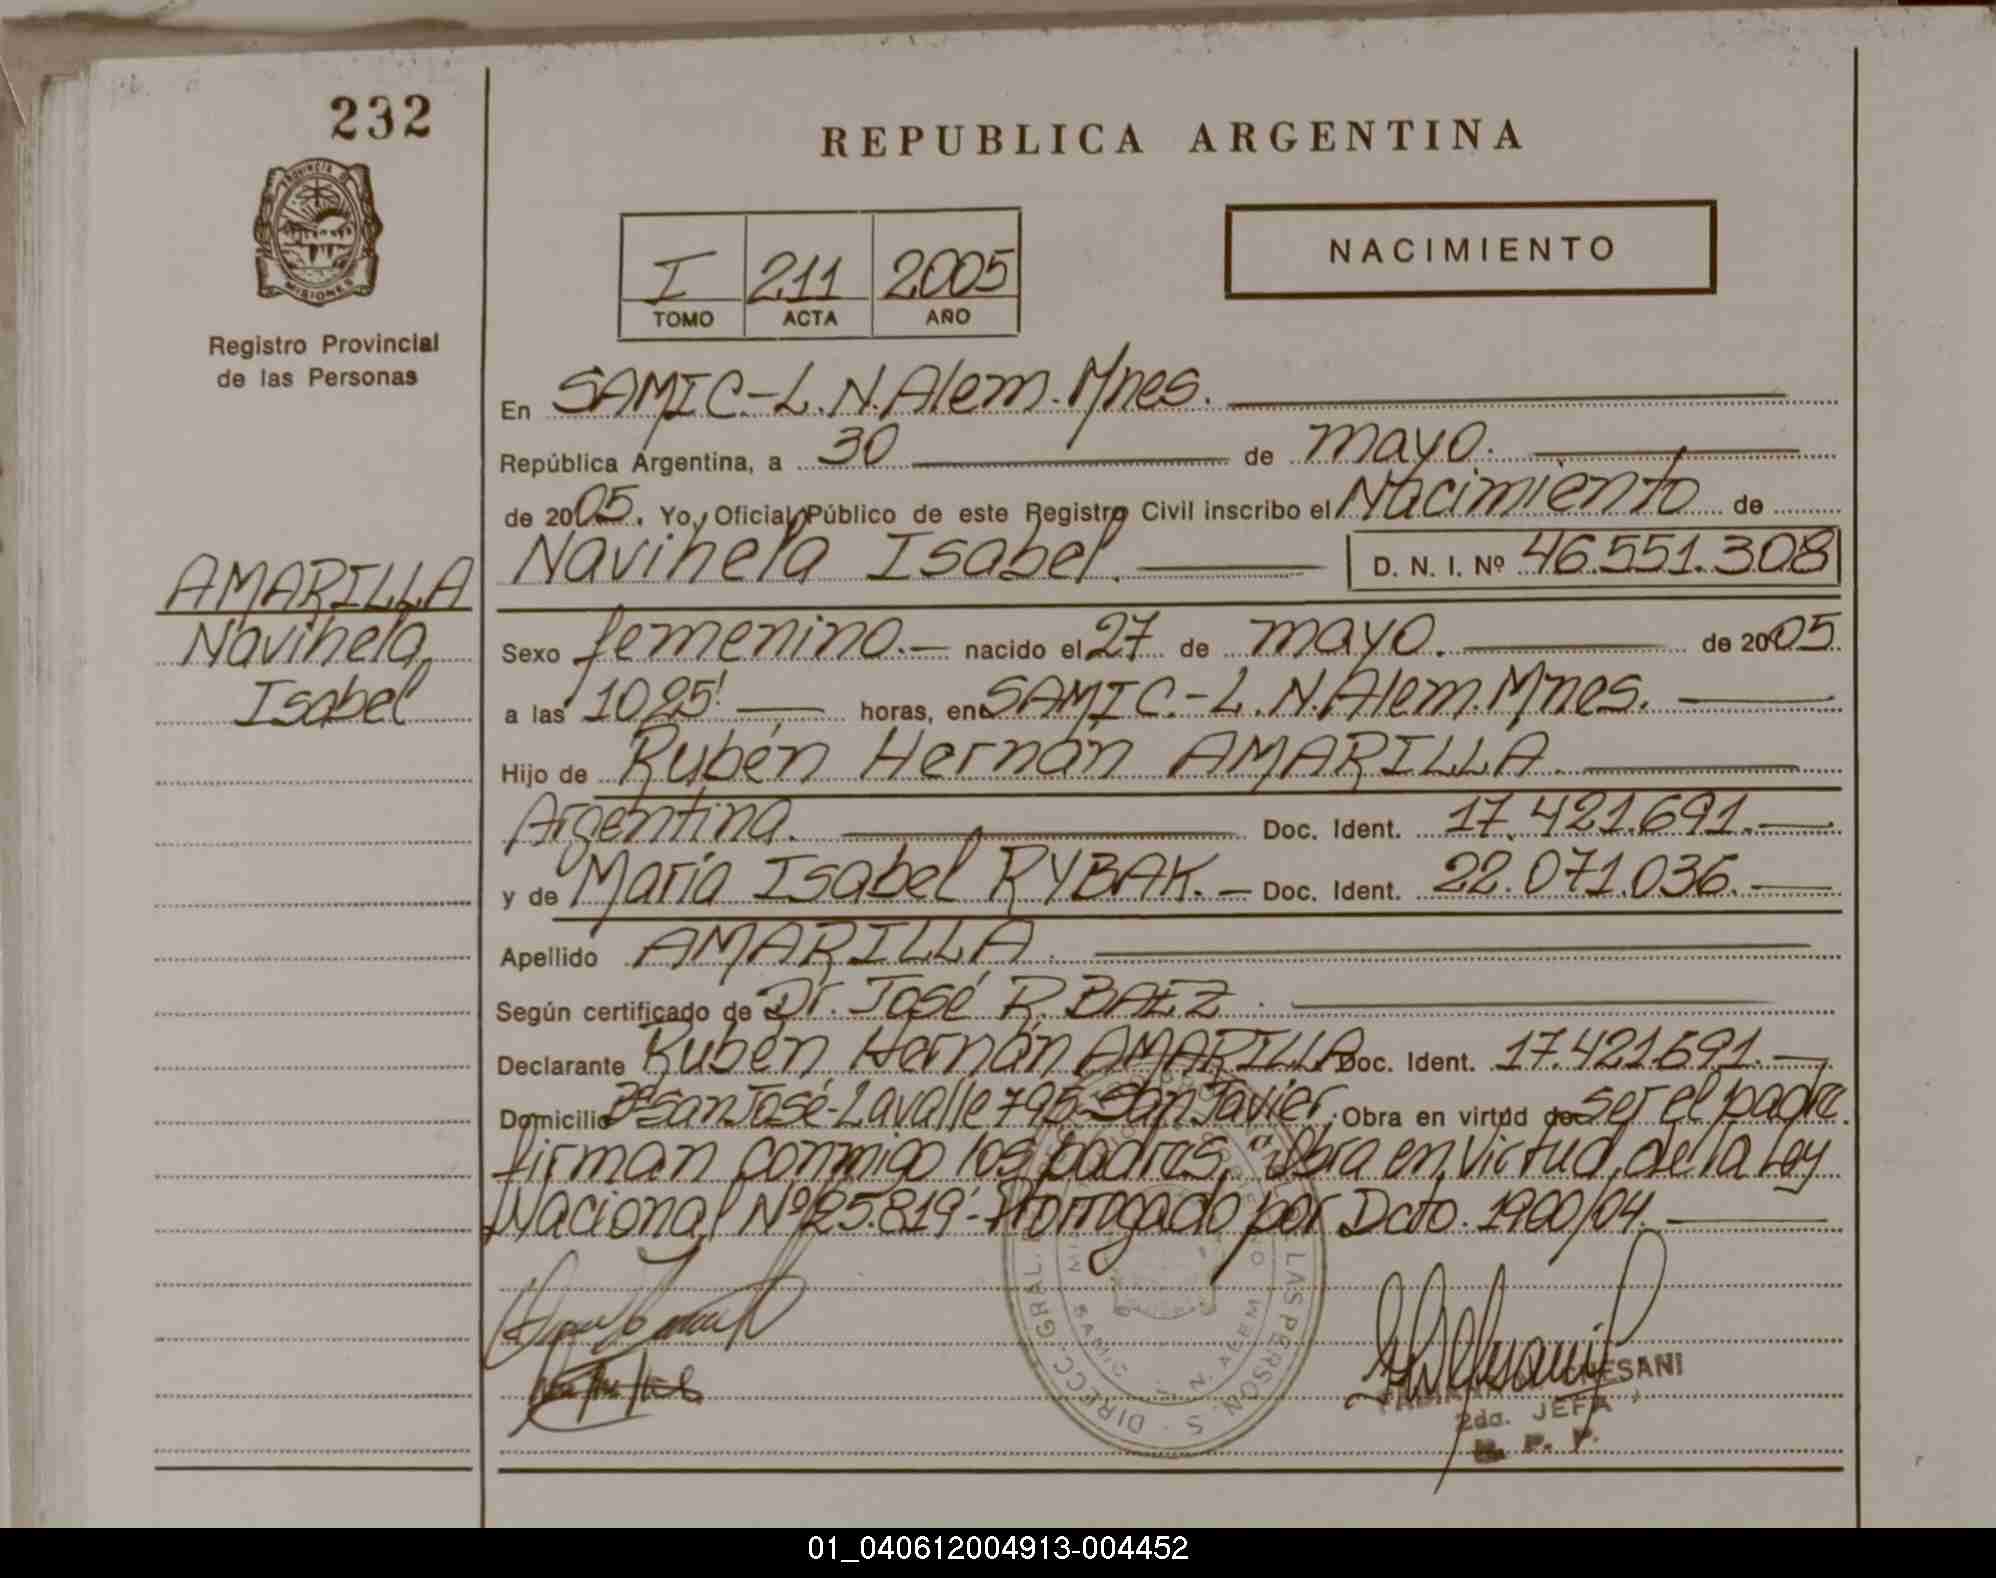 232
REPUBLICA ARGENTINA
MISIONES
Registro Provincial
de las Personas
I 211 2005
TOMO ACTA AÑO
NACIMIENTO
En SAMIC.-L.N.Alem.Mnes.
República Argentina, a 30 de mayo.
de 2005. Yo, Oficial Público de este Registro Civil inscribo el Nacimiento de
Navihela Isabel. D. N. I. Nº 46.551.308
AMARILLA
Navihela,
Isabel
Sexo femenino.- nacido el 27 de mayo. de 2005.
a las 10,25' horas, en SAMIC.-L.N.Alem.Mnes.
Hijo de Rubén Hernán AMARILLA.
Argentina. Doc. Ident. 17.421.691.-
y de María Isabel RYBAK.- Doc. Ident. 22.071.036.-
Apellido AMARILLA.
Según certificado de Dr. José R. BAEZ.
Declarante Rubén Hernán AMARILLA Doc. Ident. 17.421.691.-
Domicilio San José-Lavalle 795-San Javier. Obra en virtud de ser el padre.
firman conmigo los padres. "Obra en Virtud de la Ley
Nacional Nº 25.819'-Prorrogado por Dcto. 1900/04.
DIRECC. GRAL. LAS PERSONAS
SAMIC L. N. ALEM
2da. JEFA
R. P. P.
01_040612004913-004452